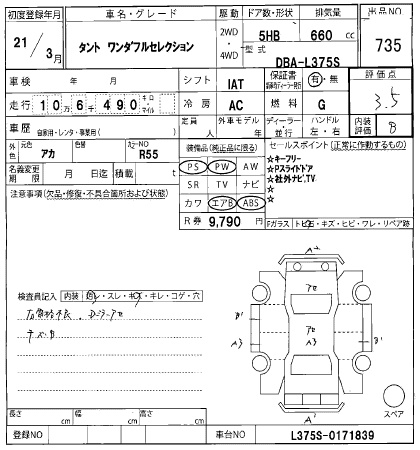 初度登録年月 車名・グレード 駆動 ドア数・形状 排気量 出品NO
21 / 3月 タント ワンダフルセレクション 2WD・4WD 5HB 660 cc 735
型式 DBA-L375S
車検 年 月 シフト IAT 保証書 有・無 評価点
走行 10万6千490 キロ・マイル 冷房 AC 燃料 G 3.5
車歴 自家用・レンタ・事業用( ) 定員 人 外車モデル 年 ディーラー・並行 ハンドル 左・右 内装評価 B
外色 元色 アカ 色替 カラーNO R55 装備品(純正品に限る) セールスポイント(正常に作動するもの)
名義変更期限 月 日迄 積載 t PS PW AW ☆キーフリー
注意事項(欠品・修復・不具合箇所および状態) SR TV ナビ ☆Pスライドドア
カワ エアB ABS ☆社外ナビ,TV
☆
☆
R券 9,790 円 Fガラス トビ石・キズ・ヒビ・ワレ・リペア跡
検査員記入 内装 ・スレ・キズ・キレ・コゲ・穴
A2
アセ
B1 B1
アセ
A3 A3 A3
A1
スペア
長さ cm 幅 cm 高さ cm
登録NO 車台NO L375S-0171839